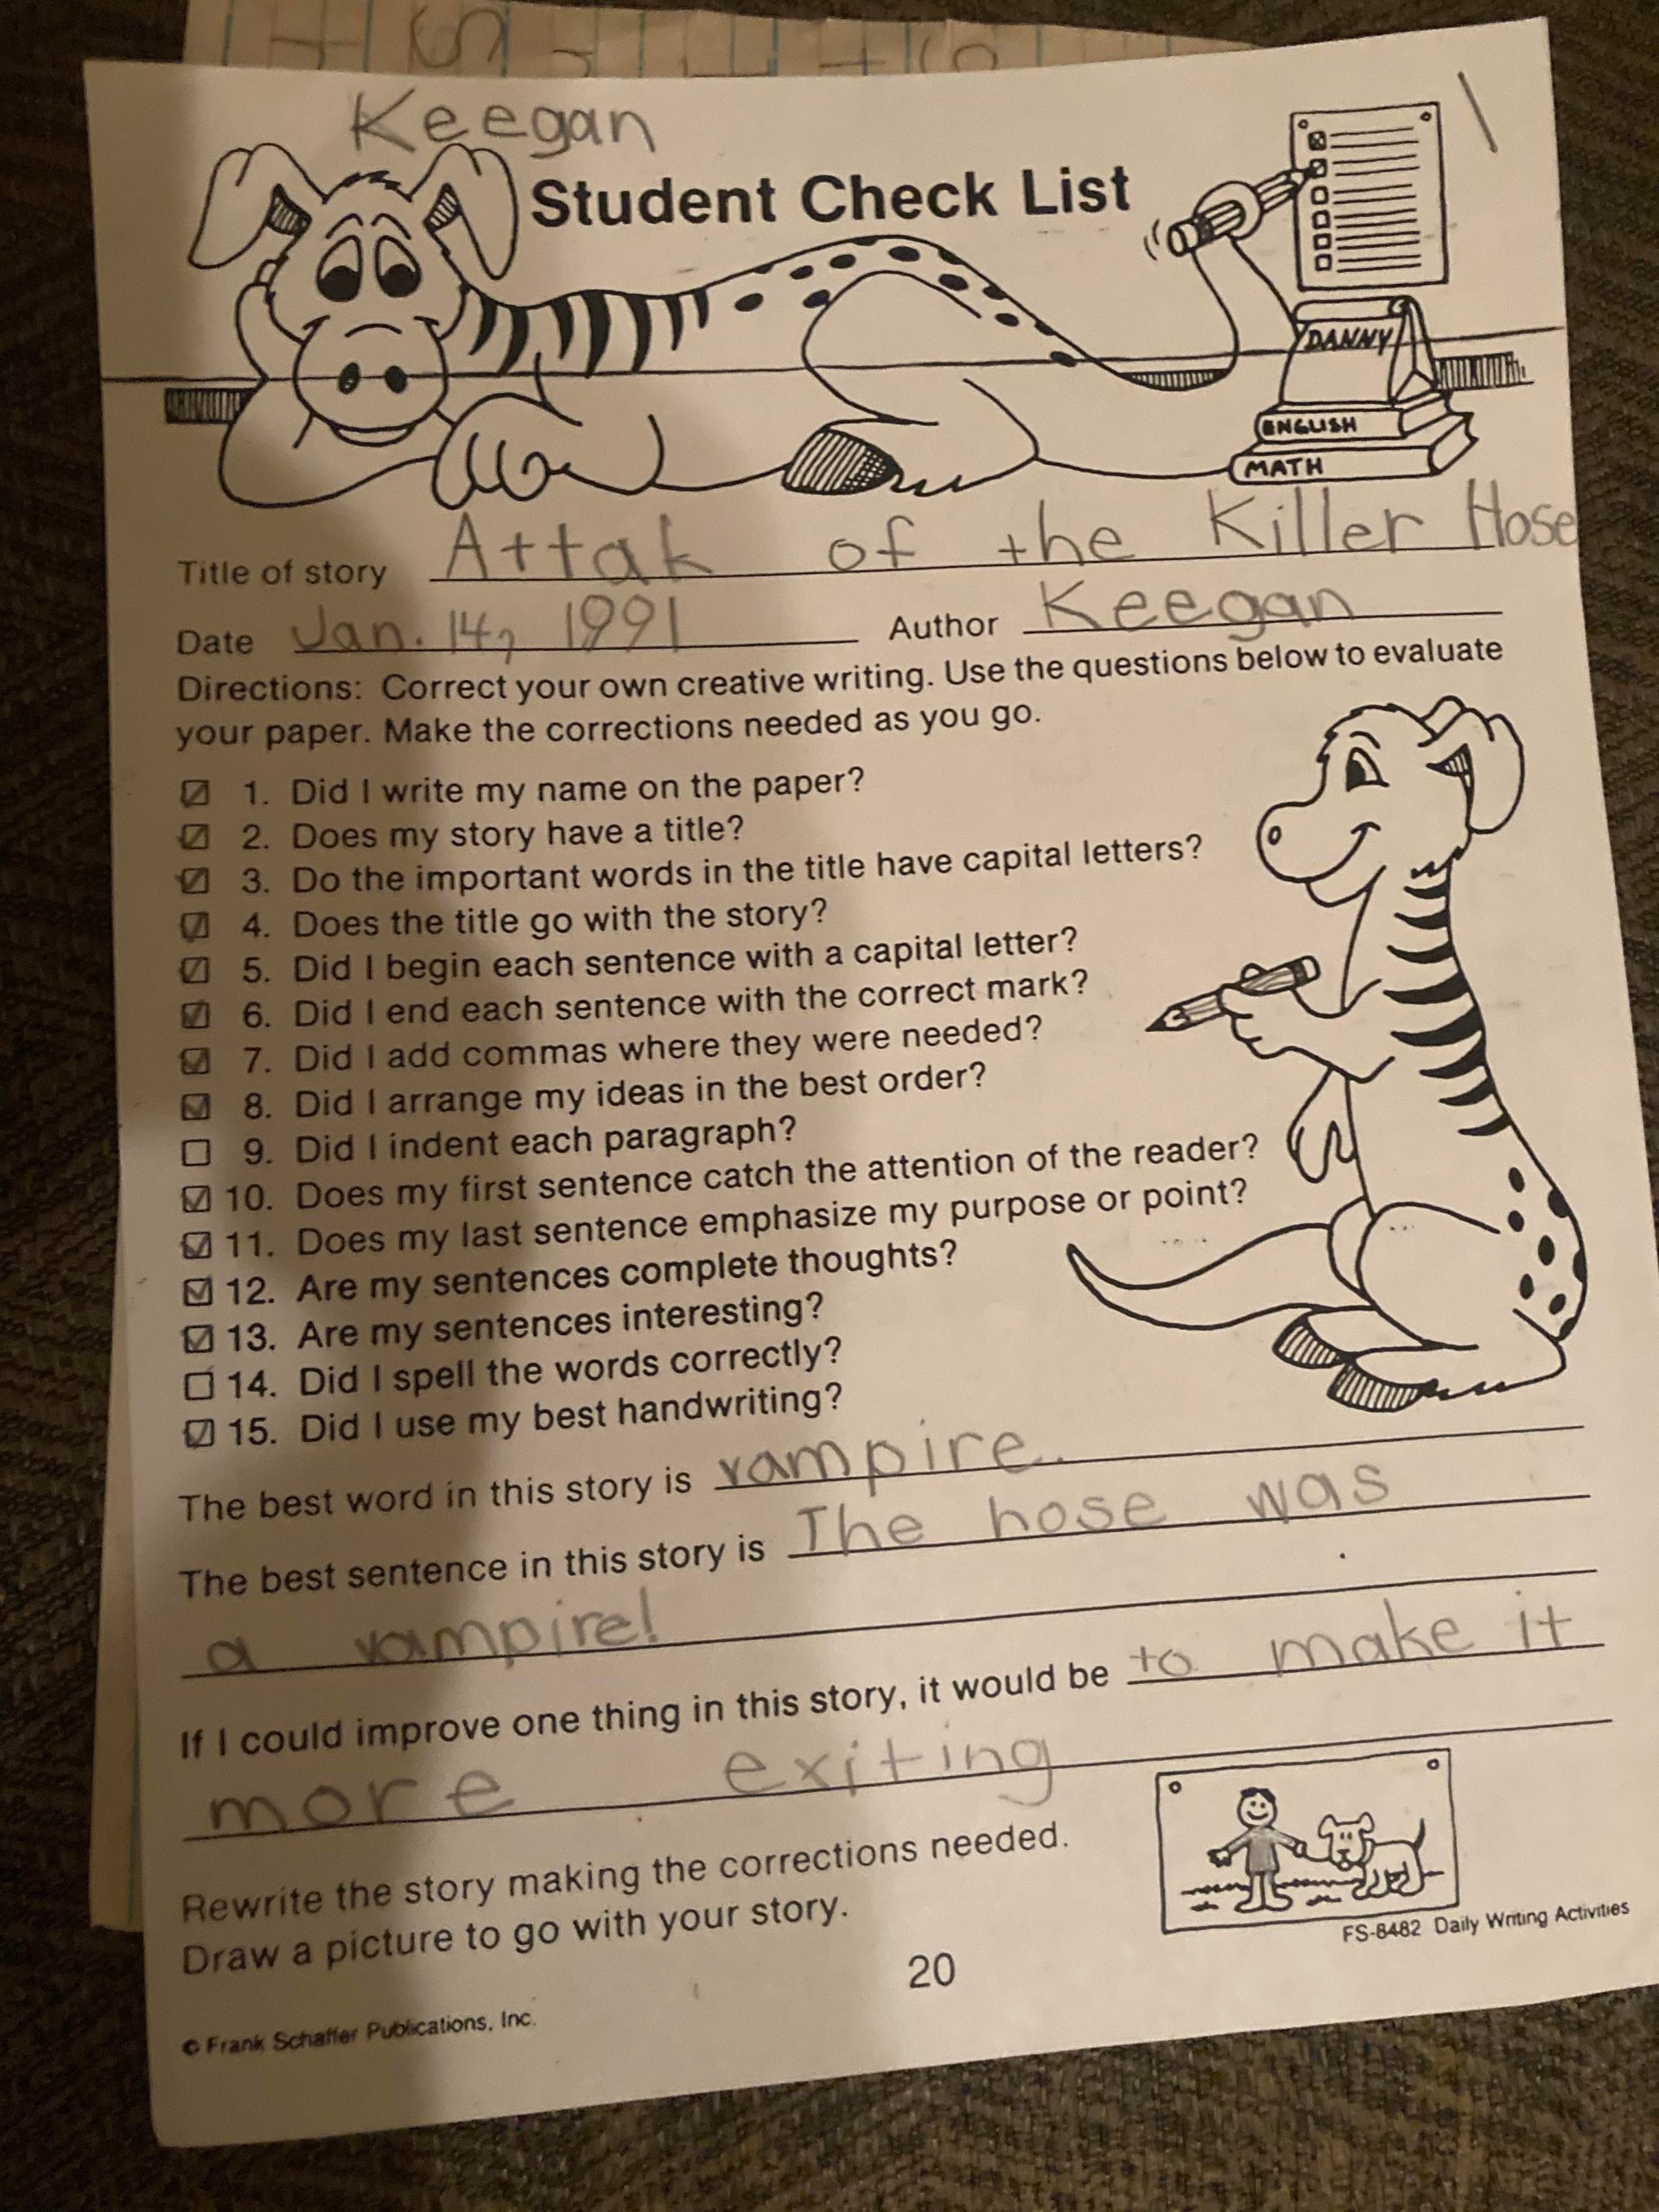 Keegan
Student Check List
DANNY
ENGLISH
MATH
Title of story Attak of the Killer Hose
Date Jan. 14, 1991 Author Keegan
Directions: Correct your own creative writing. Use the questions below to evaluate
your paper. Make the corrections needed as you go.
1. Did I write my name on the paper?
2. Does my story have a title?
3. Do the important words in the title have capital letters?
4. Does the title go with the story?
5. Did I begin each sentence with a capital letter?
6. Did I end each sentence with the correct mark?
7. Did I add commas where they were needed?
8. Did I arrange my ideas in the best order?
9. Did I indent each paragraph?
10. Does my first sentence catch the attention of the reader?
11. Does my last sentence emphasize my purpose or point?
12. Are my sentences complete thoughts?
13. Are my sentences interesting?
14. Did I spell the words correctly?
15. Did I use my best handwriting?
The best word in this story is vampire.
The best sentence in this story is The hose was
a vampire!
If I could improve one thing in this story, it would be to make it
more exiting
Rewrite the story making the corrections needed.
Draw a picture to go with your story.
FS-8482 Daily Writing Activities
20
© Frank Schaffer Publications, Inc.